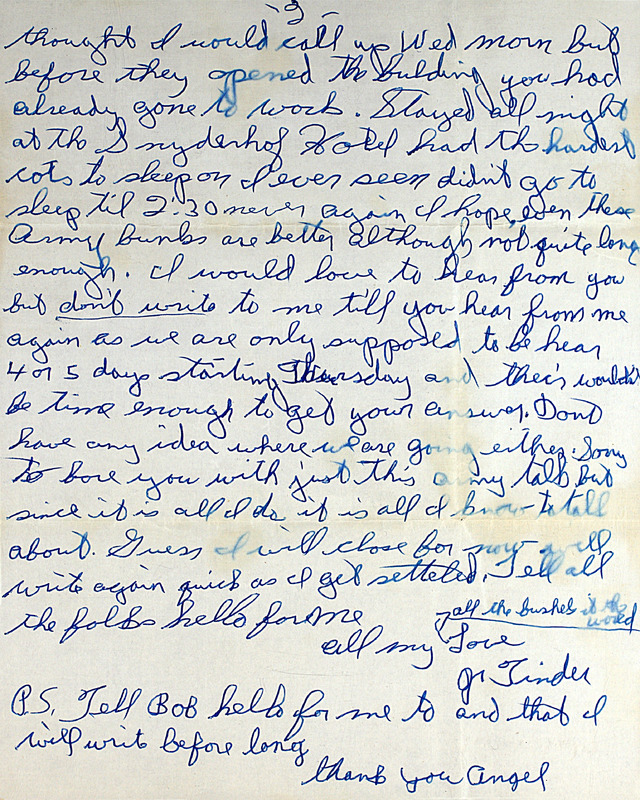 -3-
thought I would call up Wed morn but
before they opened the bulding you had
already gone to work. Stayed all night
at the Snyderhof Hotel had the hardest
cots to sleep on I ever seen didn't go to
sleep til 2:30 never again I hope, even these
Army bunks are better although not quite long
enough. I would love to hear from you
but don't write to me till you hear from me
again as we are only supposed to be hear
4 or 5 days starting Thursday and their wouldn't
be time enough to get your answer. Dont
have any idea where we are going either. Sorry
to bore you with just this army talk but
since it is all I do it is all I know to talk
about. Guess I will close for now will
write again quick as I get setteled. Tell all
the folks hello for me
all the bushels in the world
all my Love
Jr Tinder
P.S. Tell Bob hello for me to and that I
will write before long
thank you Angel